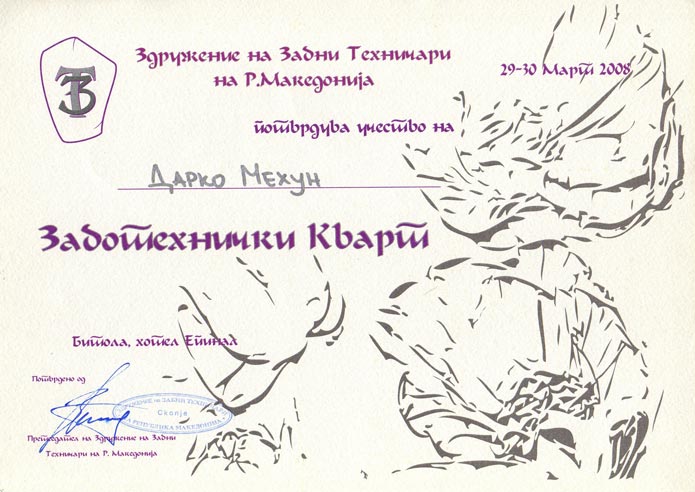 Здружение на Забни Техничари
на Р.Македонија
29-30 Март 2008
потврдува учество на
Дарко Мехун
Заботехнички Кварт
Битола, хотел Епинал
Потврдено од
ЗДРУЖЕНИЕ на ЗАБНИ ТЕХНИЧАРИ
Скопје
НА РЕПУБЛИКА МАКЕДОНИЈА
Претседател на Здружение на Забни
Техничари на Р. Македонија